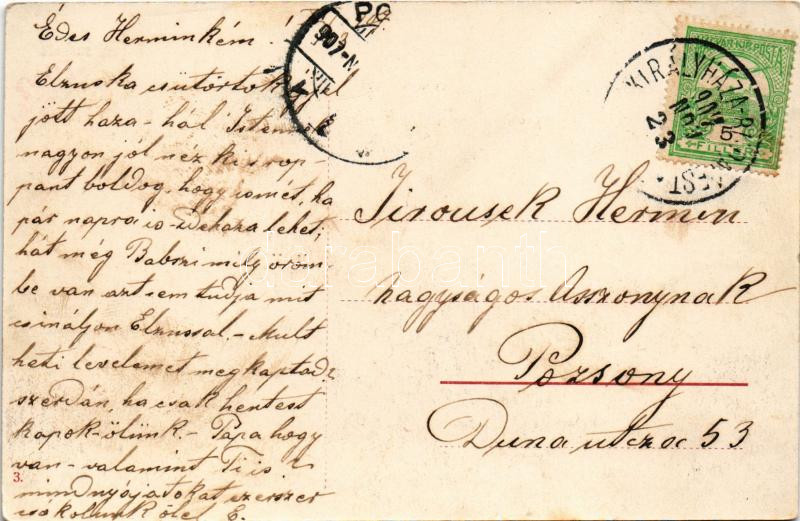 Édes Herminkém!
Elzuska csütörtök éjjel
jött haza - hál Isten
nagyon jól néz ki s rop-
pant boldog, hogy ismét, ha
pár napra is idehaza lehet;
hát még Babszi mily öröm-
be van azt sem tudja mit
csináljon Elzussal. - Mult
heti levelemet megkaptad?
szerdán, ha csak hentest
kapok - ölünk. - Papa hogy
van - valamint Ti is?
mindnyójatokat ezerszer
csókolunk ölel E.
3.
907
KIRÁLYHÁZA-BUDAPEST
907 NOV 23
MAGYAR KIR. POSTA
5
FILLÉR
Jirousek Hermin
nagyságos Asszonynak
Pozsony
Duna utcza 53
darabanth